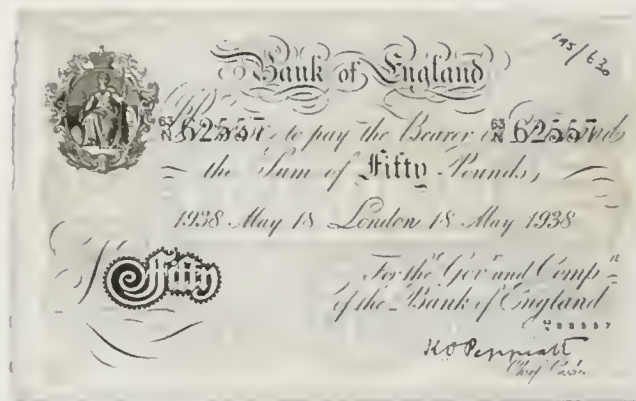 195/630
Bank of England
63 N 62557 e to pay the Bearer on 63 N 62557
the Sum of Fifty Pounds,
1938 May 18 London 18 May 1938
Fifty
For the Govr and Compa
of the Bank of England
K O Peppiatt
Chief Cashier